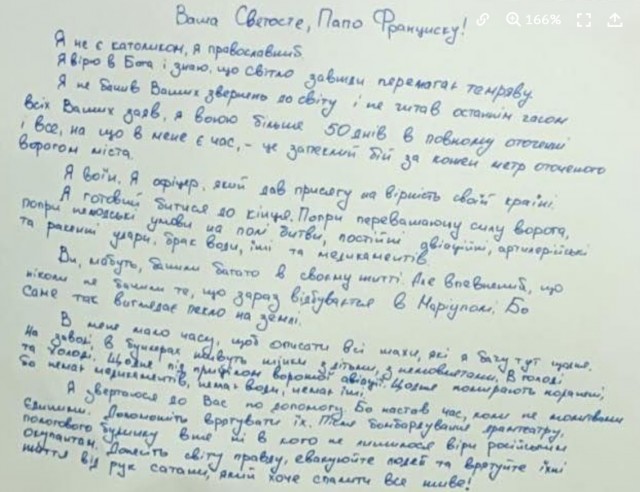 166%
Ваша Светосте, Папо Франциску!
Я не є католиком, я православний.
Я вірю в Бога і знаю, що світло завжди перемагає темряву.
Я не бачив Ваших звернень до світу і не читав останнім часом
всіх Ваших заяв, я воюю більше 50 днів в повному оточенні
і все, на що в мене є час, – це запеклий бій за кожен метр оточеного
ворогом міста.
Я воїн. Я офіцер, який дав присягу на вірність своїй країні.
Я готовий битися до кінця. Попри переважаючу силу ворога,
попри нелюдські умови на полі битви, постійні авіаційні, артилерійські
та ракетні удари, брак води, їжі та медикаментів.
Ви, мабуть, бачили багато в своєму житті. Але впевнений, що
ніколи не бачили те, що зараз відбувається в Маріуполі. Бо
саме так виглядає пекло на землі.
В мене мало часу, щоб описати всі жахи, які я бачу тут щодня.
На заводі, в бункерах живуть жінки з дітьми, з немовлятами. В голоді
та холоді. Щодня під прицілом ворожої авіації. Щодня помирають поранені,
бо немає медикаментів, немає води, немає їжі.
Я звертаюся до Вас по допомогу. Бо настав час, коли не молитвами
єдиними. Допоможіть врятувати їх. Після бомбардування драмтеатру,
пологового будинку вже ні в кого не лишилося віри російським
окупантам. Донесіть світу правду, евакуюйте людей та врятуйте їхні
життя від рук сатани, який хоче спалити все живе!